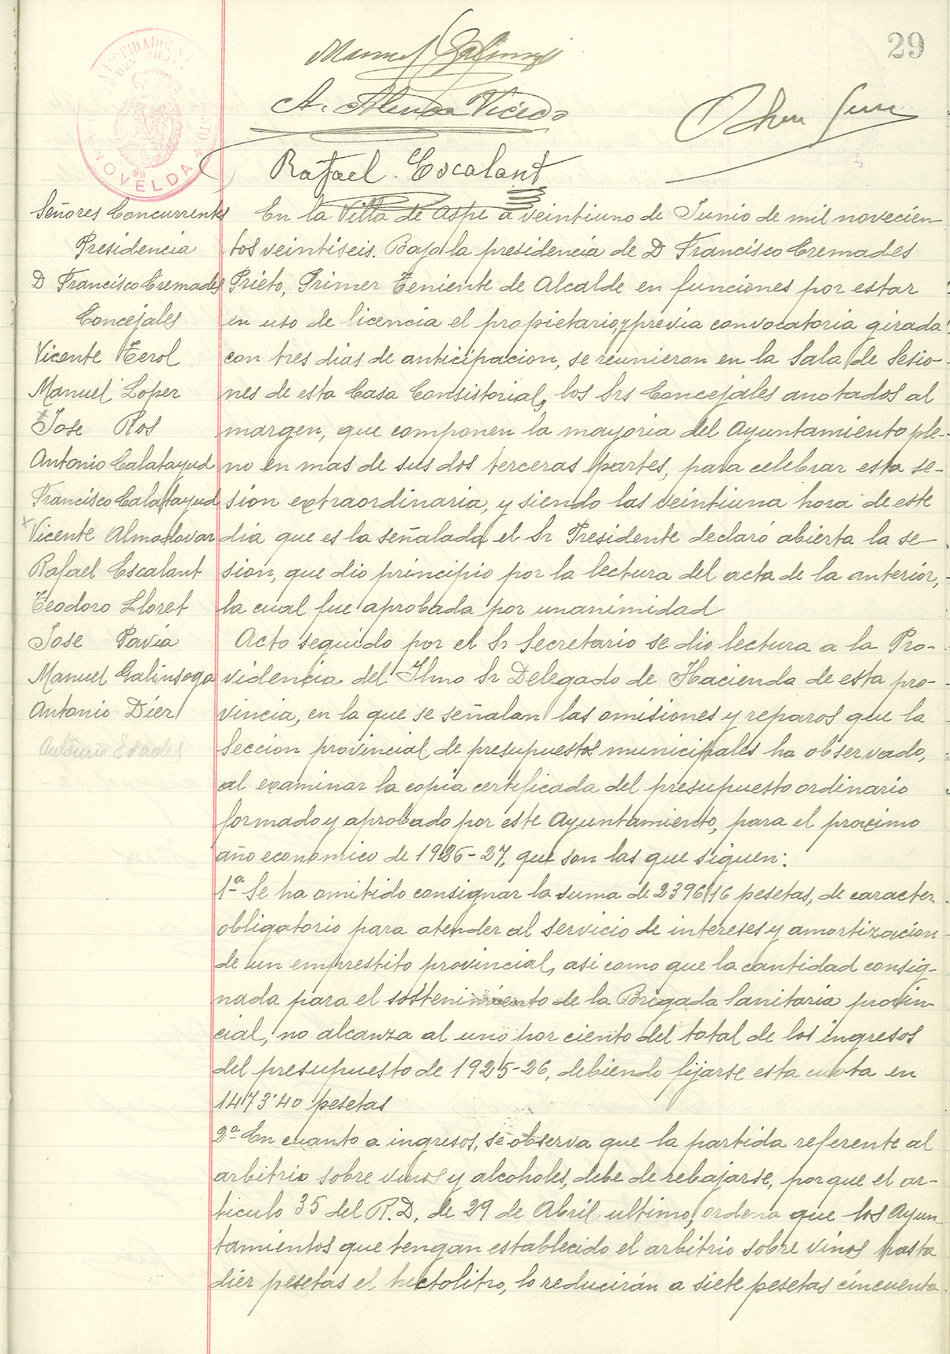 29
Manuel Galinsoga
A. Vicedo
Rafael Escalant
NOVELDA
Señores Concurrentes
Presidencia
D Francisco Cremades
Concejales
Vicente Terol
Manuel Loper
Jose Ros
Antonio Calatayud
Francisco Calatayud
Vicente Almodovar
Rafael Escalant
Teodoro Lloret
Jose Pavia
Manuel Galinsoga
Antonio Dier
En la Villa de Aspe a veintiuno de Junio de mil novecien-
tos veintiseis. Bajo la presidencia de D Francisco Cremades
Prieto, Primer Teniente de Alcalde en funciones por estar
en uso de licencia el propietario, y previa convocatoria girada
con tres dias de anticipacion, se reunieron en la Sala de Sesio-
nes de esta Casa Consistorial, los Srs Concejales anotados al
margen, que componen la mayoria del Ayuntamiento ple-
no en mas de sus dos terceras partes, para celebrar esta se-
sion extraordinaria, y siendo las veintiuna hora de este
dia que es la señalada el Sr Presidente declaró abierta la se-
sion, que dio principio por la lectura del acta de la anterior,
la cual fue aprobada por unanimidad
Acto seguido por el Sr Secretario se dio lectura a la Pro-
videncia del Ilmo Sr Delegado de Hacienda de esta pro-
vincia, en la que se señalan las omisiones y reparos que la
Seccion provincial de presupuestos municipales ha observado,
al examinar la copia certificada del presupuesto ordinario
formado y aprobado por este Ayuntamiento, para el proximo
año economico de 1926-27, que son las que siguen:
1ª Se ha omitido consignar la suma de 2396'16 pesetas, de caracter
obligatorio para atender al servicio de intereses y amortizacion
de un emprestito provincial, asi como que la cantidad consig-
nada para el sostenimiento de la Brigada Sanitaria provin-
cial, no alcanza al uno por ciento del total de los ingresos
del presupuesto de 1925-26, debiendo fijarse esta cuota en
1473'40 pesetas
2ª En cuanto a ingresos, se observa que la partida referente al
arbitrio sobre vinos y alcoholes, debe de rebajarse, porque el ar-
ticulo 35 del R.D. de 29 de Abril ultimo, ordena que los Ayun-
tamientos que tengan establecido el arbitrio sobre vinos hasta
dier pesetas el hectolitro, lo reducirán a siete pesetas cincuenta